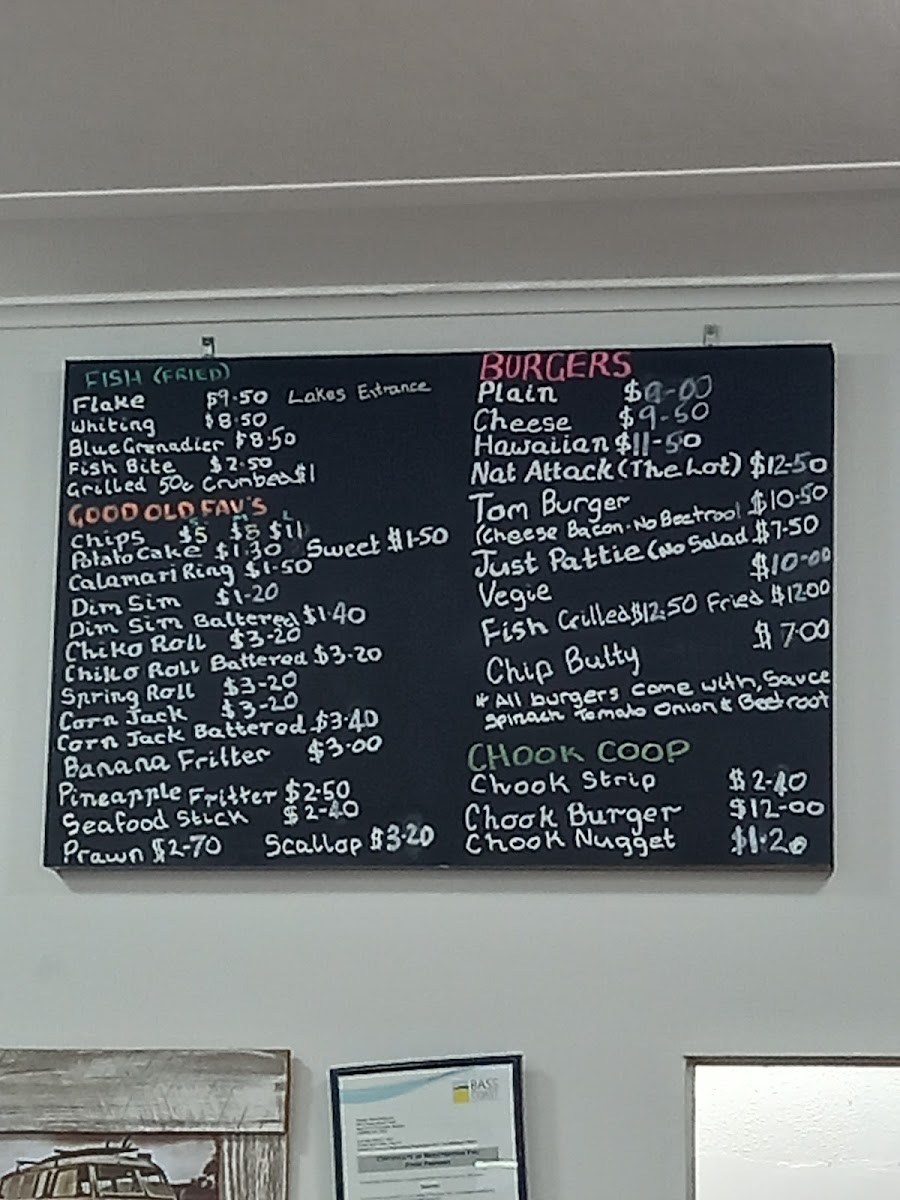 FISH (FRIED)
Flake $9.50 Lakes Entrance
Whiting $8.50
Blue Grenadier $8.50
Fish Bite $2.50
Grilled 50c Crumbed $1
GOOD OLD FAV'S
S M L
Chips $5 $8 $11
Potato Cake $1.30 Sweet $1-50
Calamari Ring $1-50
Dim Sim $1-20
Dim Sim Battered $1.40
Chiko Roll $3-20
Chiko Roll Battered $3-20
Spring Roll $3-20
Corn Jack $3-20
Corn Jack Battered $3-40
Banana Fritter $3.00
Pineapple Fritter $2-50
Seafood Stick $2-40
Prawn $2-70 Scallop $3-20
BURGERS
Plain $9-00
Cheese $9-50
Hawaiian $11-50
Nat Attack (The Lot) $12-50
Tom Burger $10-50
(Cheese Bacon-No Beetroot
Just Pattie (No Salad $7-50
Vegie $10-00
Fish Grilled $12.50 Fried $12.00
Chip Butty $7.00
* All burgers come with, Sauce
Spinach Tomato Onion & Beetroot
CHOOK COOP
Chook Strip $2-40
Chook Burger $12-00
Chook Nugget $1.20
BASS
COAST